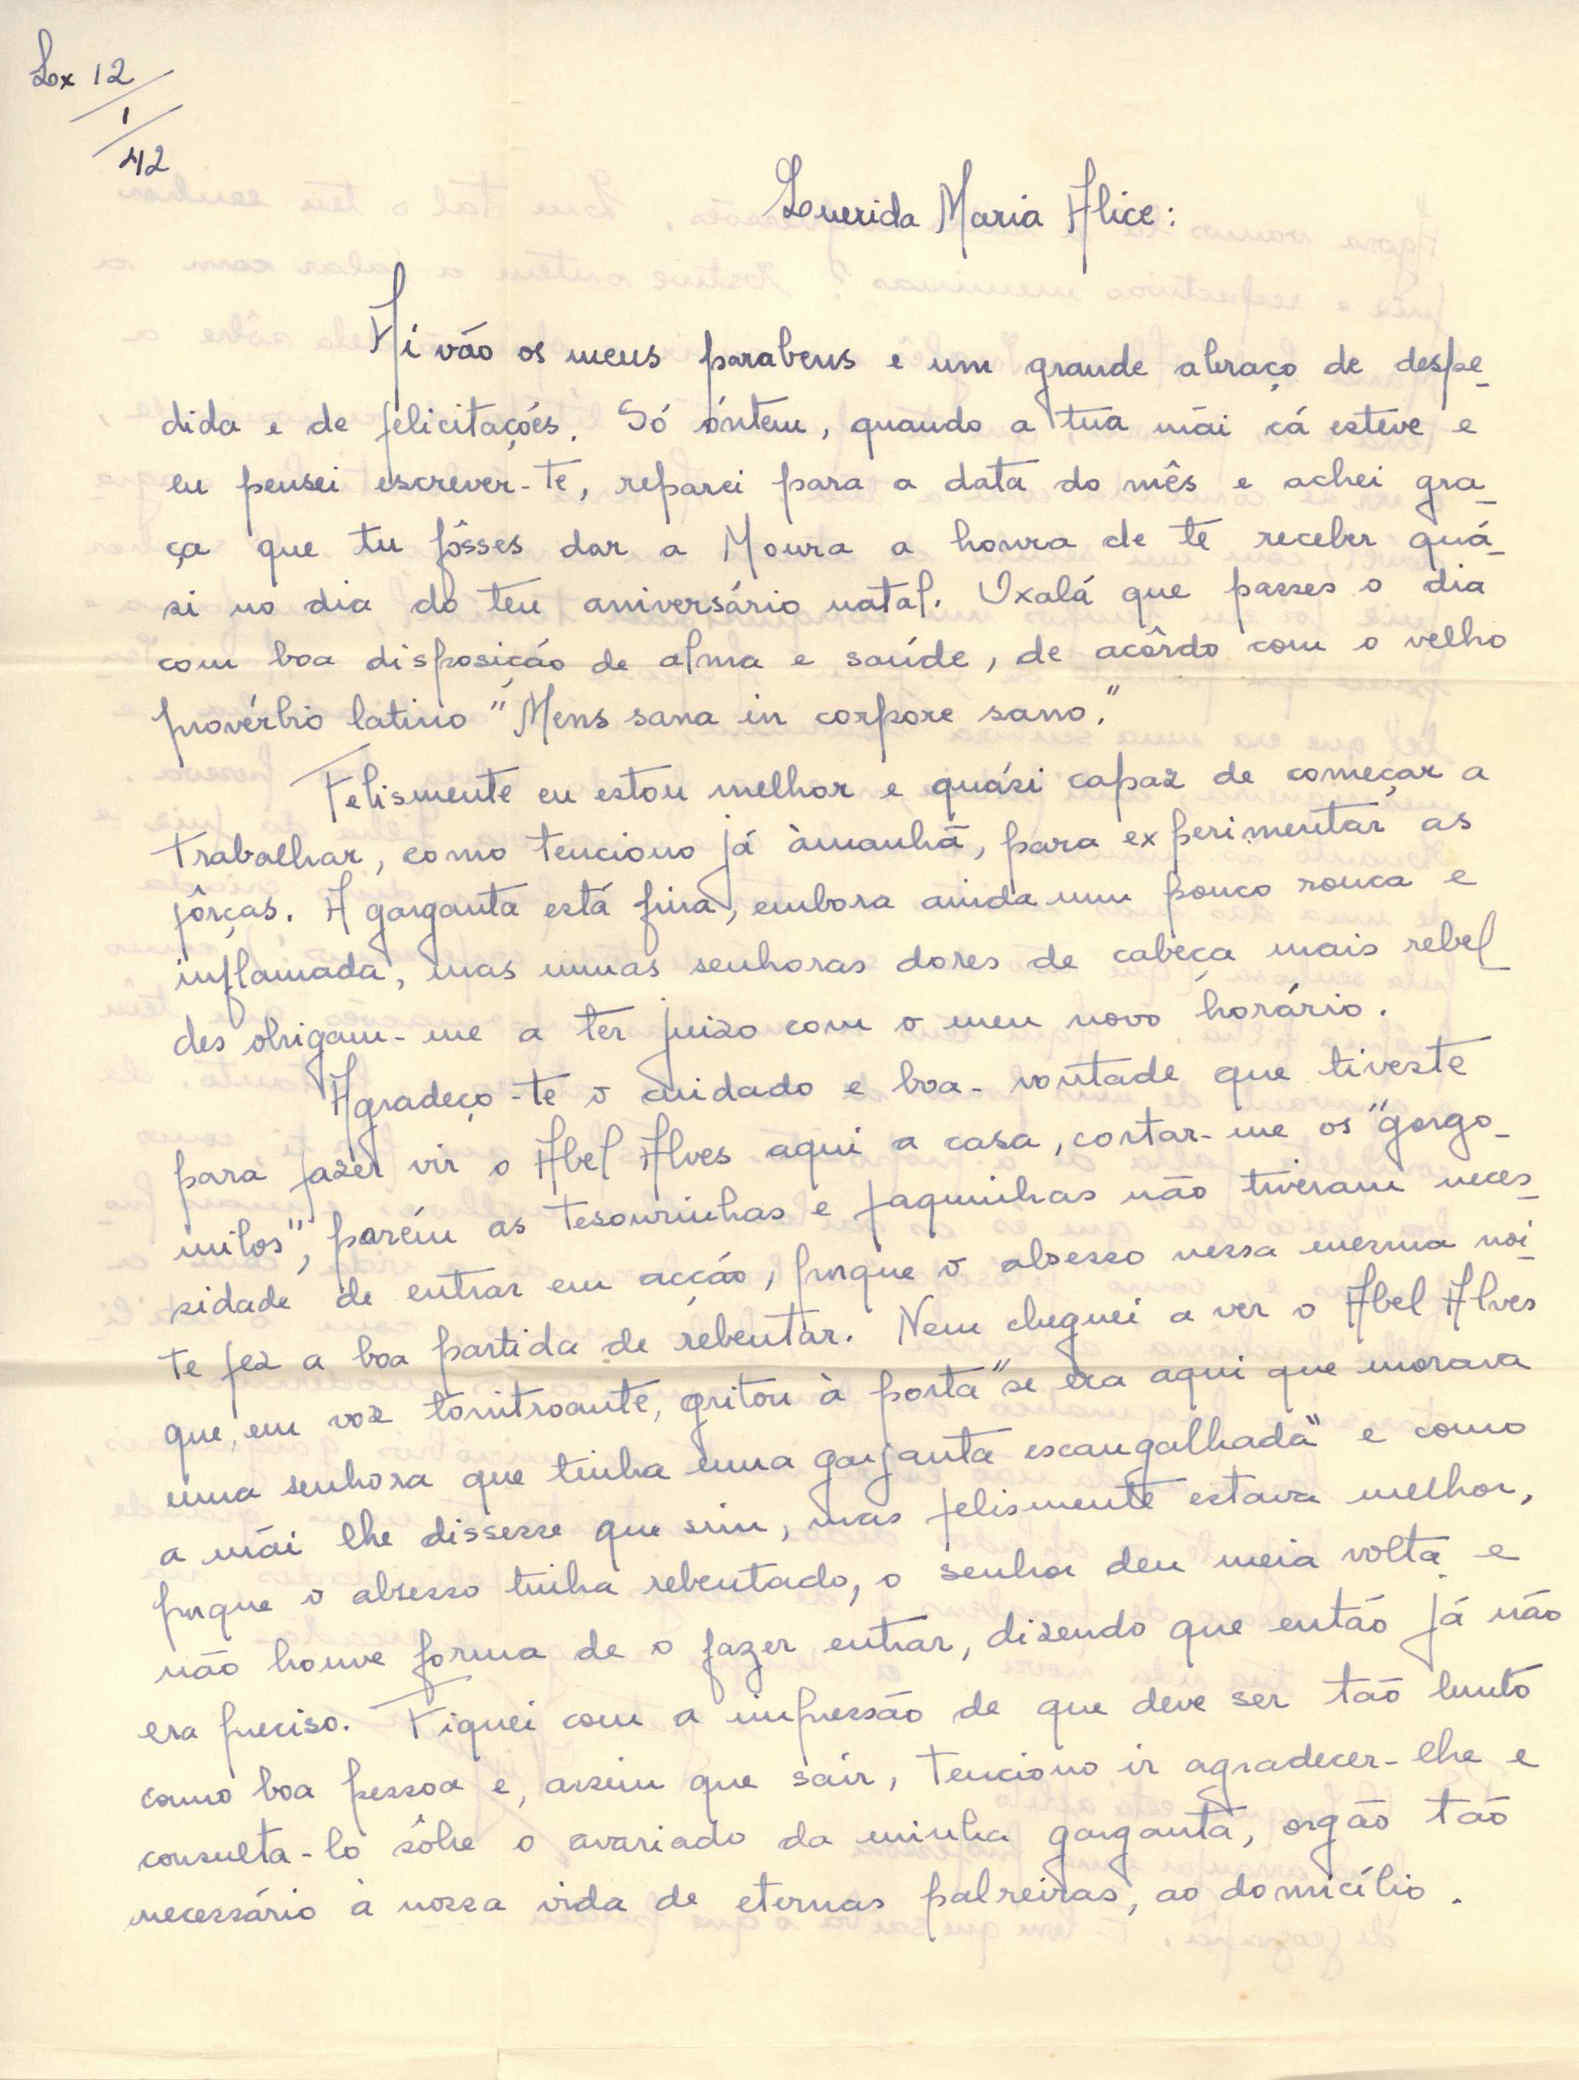 Lx 12
1
42
Querida Maria Alice:
Aí vão os meus parabens e um grande abraço de despe-
dida e de felicitações. Só óntem, quando a tua mãi cá esteve e
eu pensei escrever-te, reparei para a data do mês e achei gra-
ça que tu fôsses dar a Moura a honra de te receber quá-
si no dia do teu aniversário natal. Oxalá que passes o dia
com boa disposição de alma e saúde, de acôrdo com o velho
provérbio latino "Mens sana in corpore sano."
Felismente eu estou melhor e quási capaz de começar a
trabalhar, como tenciono já àmanhã, para experimentar as
fôrças. A garganta está fina, embora ainda um pouco rouca e
inflamada, mas umas senhoras dores de cabeça mais rebel
des obrigam-me a ter juizo com o meu novo horário.
Agradeço-te o cuidado e boa-vontade que tiveste
para fazer vir o Abel Alves aqui a casa, cortar-me os "gorgo-
milos", porém as tesourinhas e faquinhas não tiveram neces-
sidade de entrar em acção, porque o absesso nessa mesma noi-
te fez a boa partida de rebentar. Nem cheguei a ver o Abel Alves
que, em voz tonitroante, gritou à porta "se era aqui que morava
uma senhora que tinha uma garganta escangalhada" e como
a mãi lhe dissesse que sim, mas felismente estava melhor,
porque o absesso tinha rebentado, o senhor deu meia volta e
não houve forma de o fazer entrar, dizendo que então já não
era preciso. Fiquei com a impressão de que deve ser tão bruto
como boa pessoa e, assim que sair, tenciono ir agradecer-lhe e
consulta-lo sôbre o avariado da minha garganta, orgão tão
necessário à nossa vida de eternas palreiras, ao domicílio.